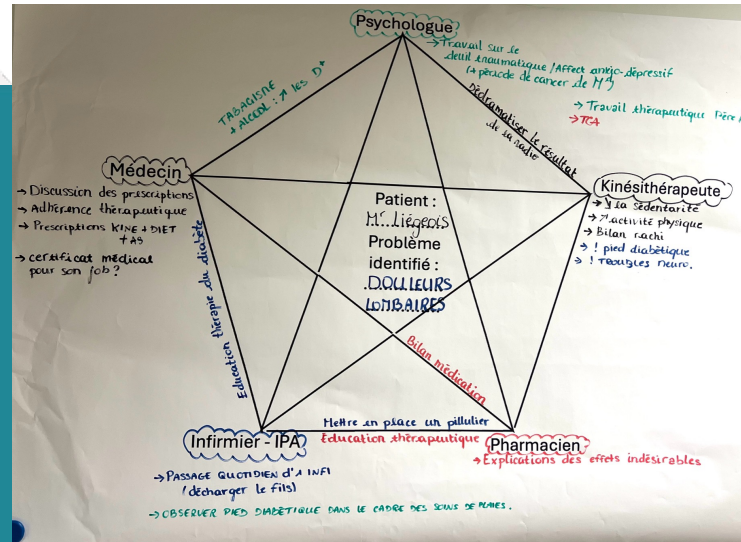 Psychologue
→ Travail sur le
deuil traumatique / Affect anxio-dépressif
(+ période de cancer de Mᵐᵉ)
→ Travail thérapeutique Père /
→ TCA
TABAGISME
+ ALCOOL : ↗ les D+
Dédramatiser le résultat
de la radio
Médecin
→ Discussion des prescriptions
→ Adhérence thérapeutique
→ Prescriptions KINE + DIET
+ AS
→ certificat médical
pour son job ?
Kinésithérapeute
→ ↘ la sédentarité
→ ↗ activité physique
→ Bilan rachi
→ ! pied diabétique
→ ! TROUBLES neuro.
Patient :
Mʳ Liégeois
Problème
identifié :
DOULEURS
LOMBAIRES
Education thérapie du diabète
Bilan médication
Mettre en place un pillulier
Éducation thérapeutique
Infirmier - IPA
→ PASSAGE QUOTIDIEN d'1 INFI
(décharger le fils)
→ OBSERVER PIED DIABÉTIQUE DANS LE CADRE DES SOINS DE PLAIES.
Pharmacien
→ Explications des effets indésirables